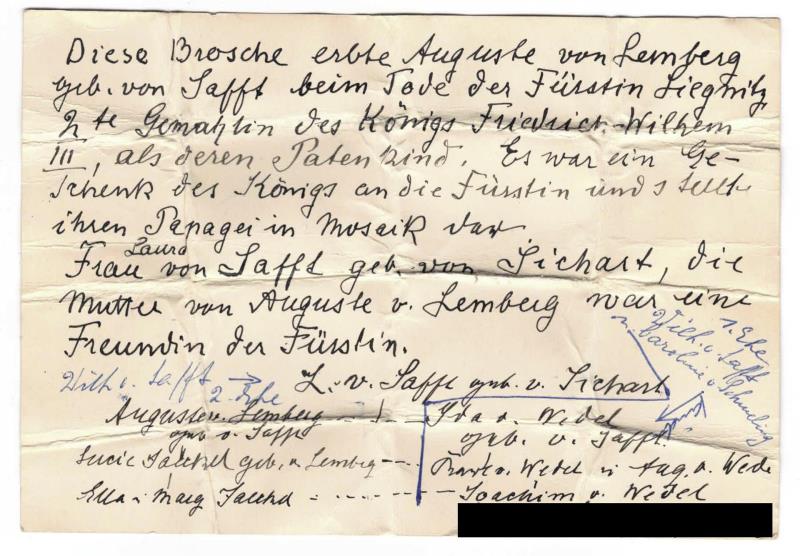 Diese Brosche erbte Auguste von Lemberg
geb. von Safft beim Tode der Fürstin Liegnitz,
2te Gemahlin des Königs Friedrich Wilhelm
III, als deren Patenkind. Es war ein Ge-
schenk des Königs an die Fürstin und stellte
ihren Papagei in Mosaik dar.
Laura
Frau von Safft geb. von Sichart, die
Mutter von Auguste v. Lemberg war eine
Freundin der Fürstin.
1. Ehe
Wilh. v. Safft
u. Caroline v.
Wilh v. Safft → 2. Ehe
L. v. Safft geb. v. Sichart
Auguste v. Lemberg Ida v. Wedel
geb v. Safft geb. v. Safft
Lucie geb. v. Lemberg v. Wedel u Aug. v. Wedel
Ella u Marg Joachim v. Wedel